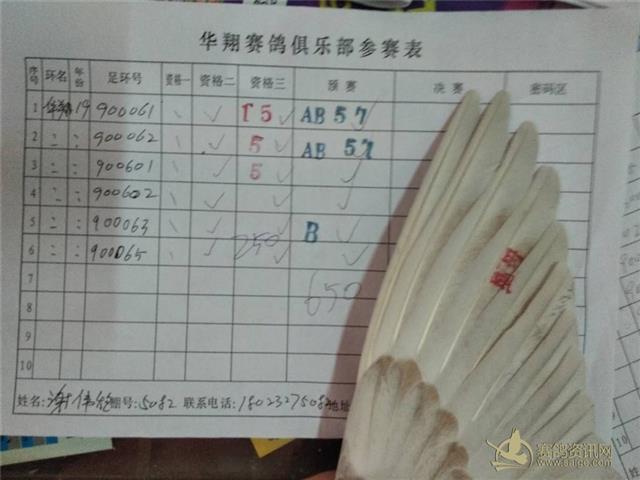 华翔赛鸽俱乐部参赛表
序号 环名 年份 足环号 资格一 资格二 资格三 预赛 决赛 密码区
1 华翔 19 900061 \ ✓ T 5 ✓ AB 57 ✓
2 〃 〃 900062 \ ✓ 5 ✓ AB 57
3 〃 〃 900601 \ ✓ 5 ✓ ✓
4 〃 〃 900602 \ ✓ ✓ ✓
5 〃 〃 900063 \ ✓ ✓ B ✓
6 〃 〃 900065 \ ✓ 250 ✓
7
8 650
9
10
姓名: 谢伟 棚号: 5082 联系电话: 地址
赛鸽资讯网
www.saige.com